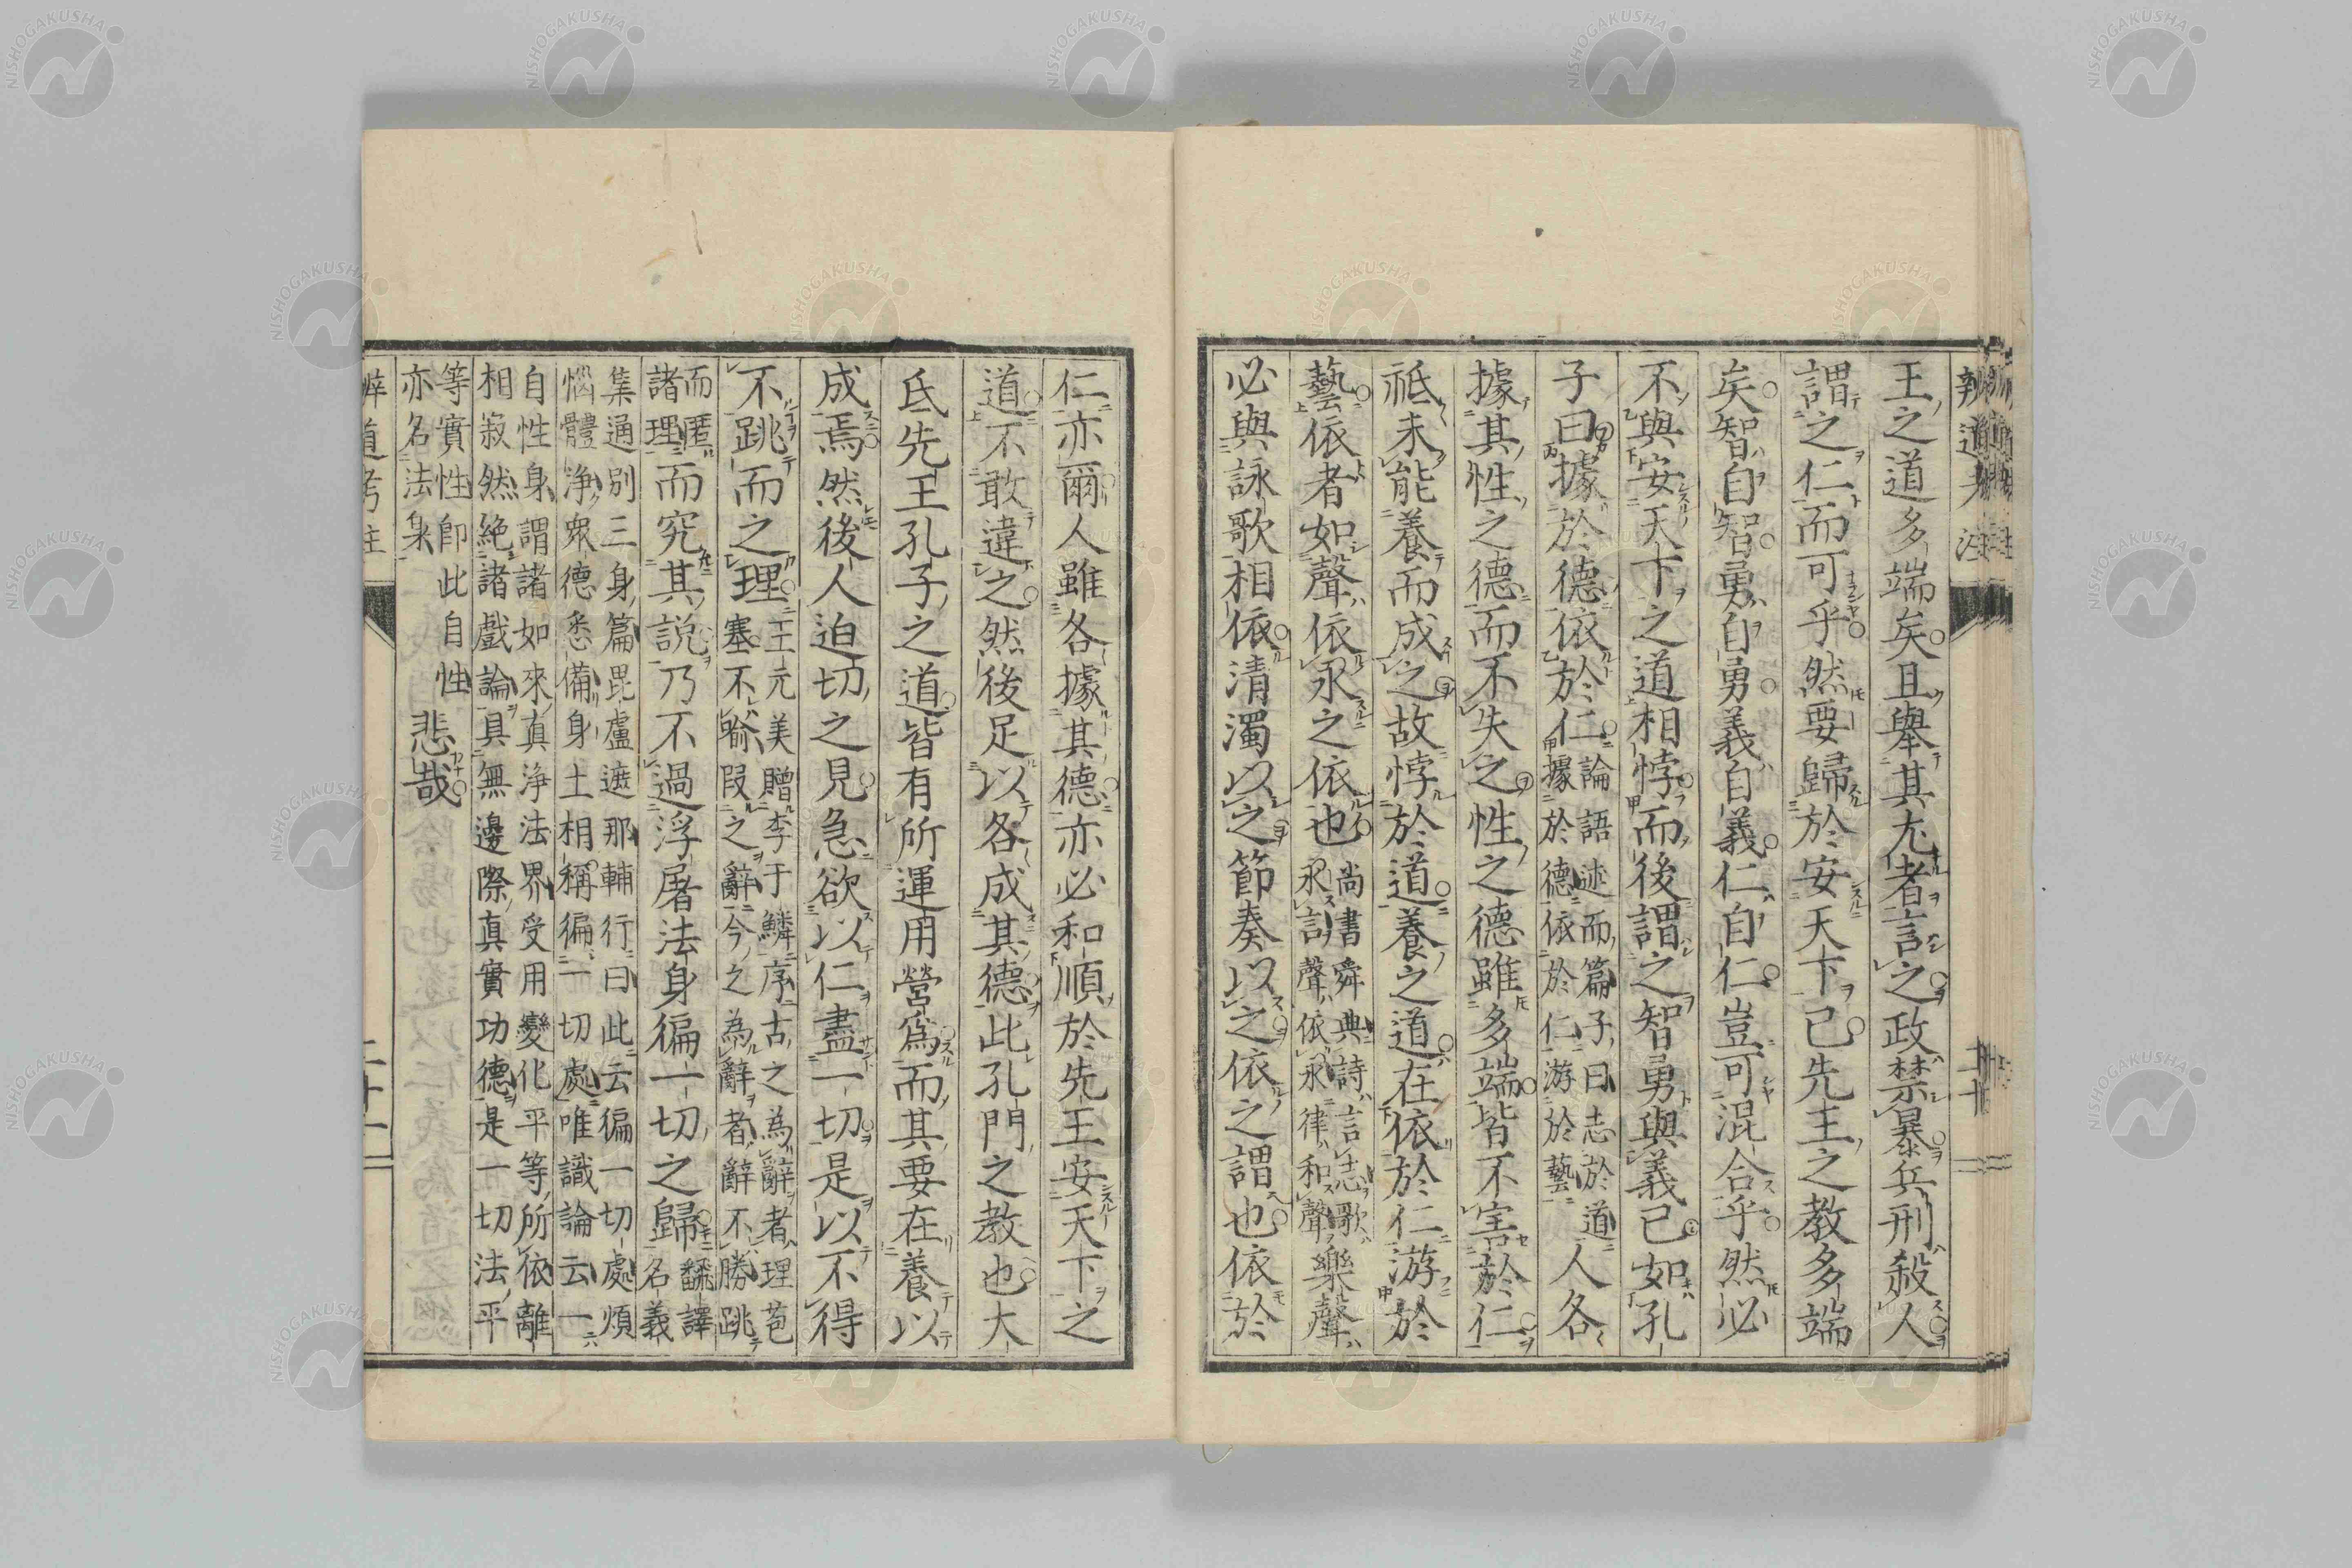 辨道考注
二十
王之道多端矣且舉其尤者言之政禁暴兵刑殺人
謂之仁而可乎然要歸於安天下已先王之教多端
矣智自智勇自勇義自義仁自仁豈可混合乎然必
不與安天下之道相悖而後謂之智勇與義已如孔
子曰據於德依於仁
論語述而篇子曰志於道
據於德依於仁游於藝
人各
據其性之德而不失之性之德雖多端皆不害於仁
祗未能養而成之故悖於道養之道在依於仁游於
藝依者如聲依永之依也
尚書舜典詩言志歌
永言聲依永律和聲
樂聲
必與詠歌相依清濁以之節奏以之依之謂也依於
仁亦爾人雖各據其德亦必和順於先王安天下之
道不敢違之然後足以各成其德此孔門之教也大
氐先王孔子之道皆有所運用營爲而其要在養以
成焉然後人迫切之見急欲以仁盡一切是以不得
不跳而之理
王元美贈李于鱗序古之為辭者理苞
塞不喻叚之辭今之為辭者辭不勝跳
而匿
諸理
而究其說乃不過浮屠法身徧一切之歸
翻譯
名義
集通別三身篇毘盧遮那輔行曰此云徧一切處煩
惱體淨衆德悉備身土相稱徧一切處唯識論云一
自性身謂諸如來真淨法界受用變化平等所依離
相寂然絶諸戲論具無邊際真實功德是一切法平
等實性卽此自性
亦名法身
悲哉
辨道考注
二十一